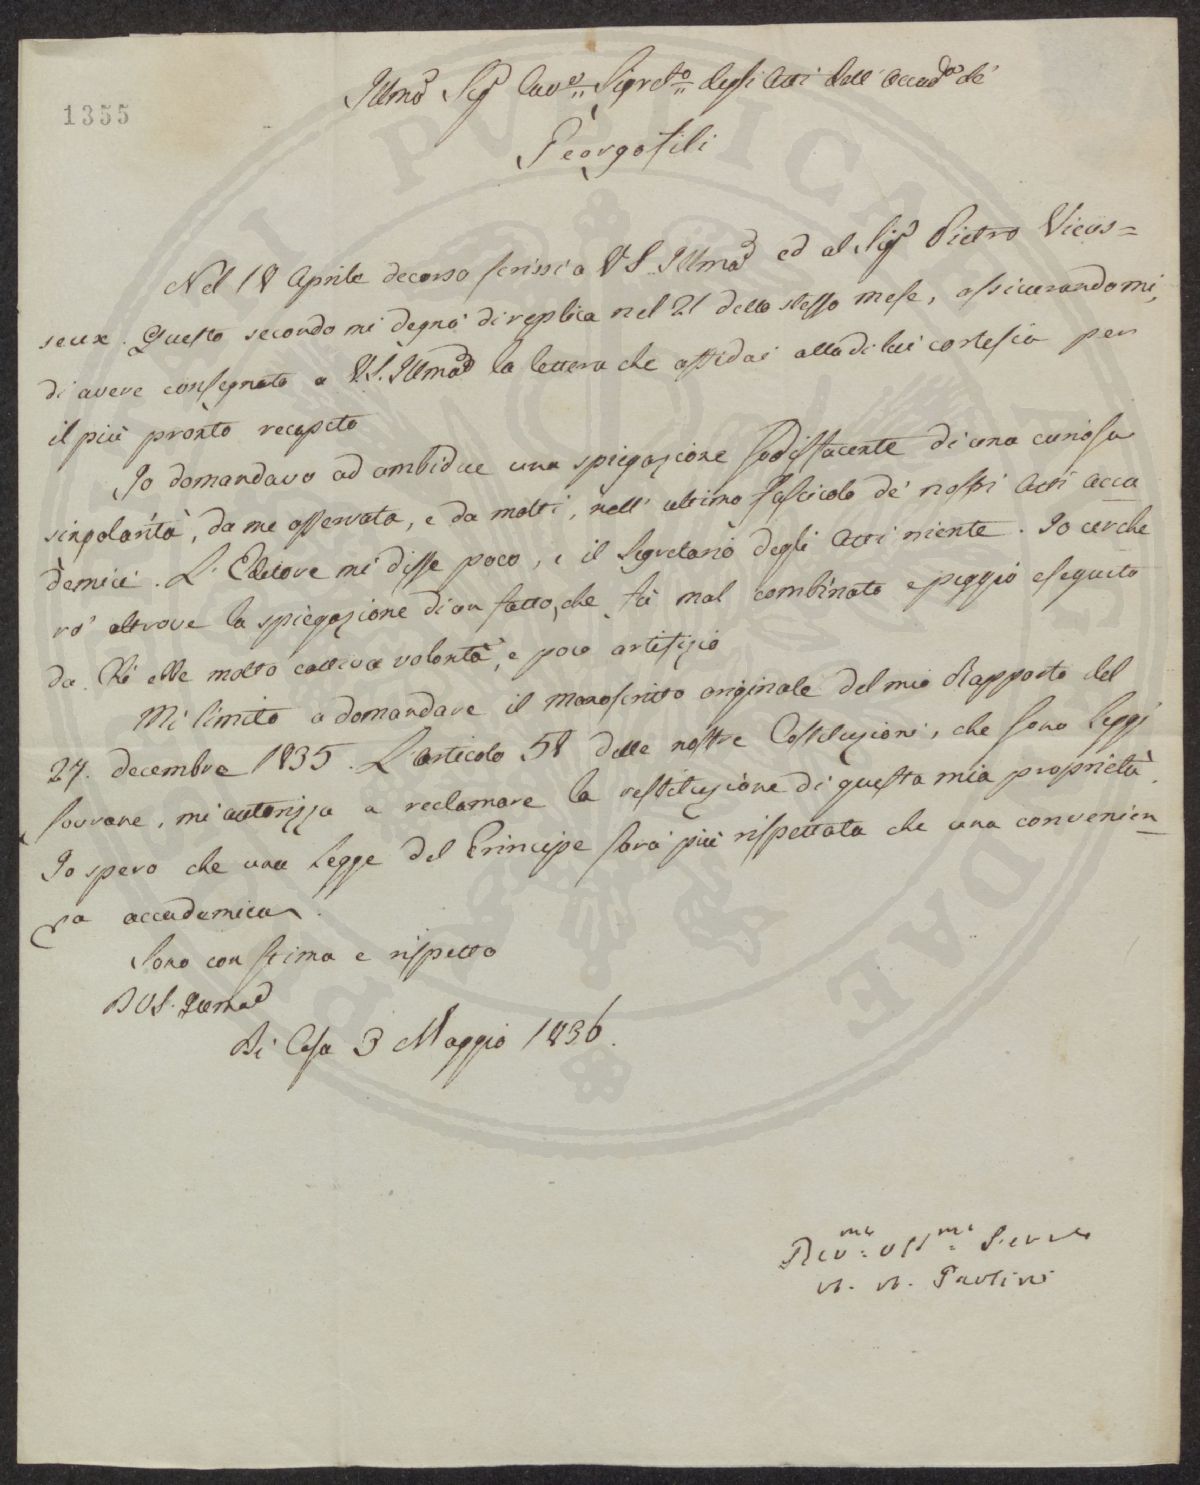 1355
Illmo Sigr Cave Segreto degli Atti dell' Accadia de'
Georgofili
Nel 18 Aprile decorso scrissi a VS. Illma ed al Sigr Pietro Vieus=
seux. Questo secondo mi degnò di replica nel 21 dello stesso mese, assicurandomi,
di avere consegnato a VS. Illma la lettera che affidai alla di lui cortesia per
il più pronto recapito
Io domandavo ad ambidue una spiegazione sodisfacente di una curiosa
singolarità, da me osservata, e da molti, nell' ultimo fascicolo de' nostri Atti acca
demici. L' Editore mi disse poco, e il Segretario degli Atti niente. Io cerche
rò altrove la spiegazione di un fatto, che fù mal combinato e peggio eseguito
da chi ebbe molta cattiva volontà, e poco artifizio
Mi limito a domandare il manoscritto originale del mio Rapporto del
27. decembre 1835. L'articolo 58 delle nostre Costituzioni, che sono Leggi
sovrane, mi autorizza a reclamare la restituzione di questa mia proprietà.
Io spero che una Legge del Principe sarà più rispettata che una convenien
za accademica.
Sono con stima e rispetto
D VS. Illma
Di Casa 3 Maggio 1836.
Devmo Obbmo Serve
A. Paolini
PUBLICAE